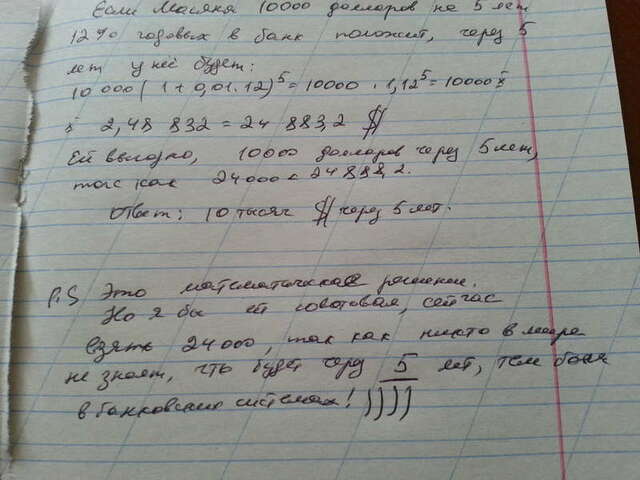 Если Масяня 10000 долларов на 5 лет
12% годовых в банк положит, через 5
лет у неё будет:
10 000 ( 1 + 0,01 · 12)⁵ = 10000 · 1,12⁵ = 10000 x
x 2,48 832 = 24 883,2 $
Ей выгодно, 10000 долларов через 5 лет,
так как 24000 < 24 888,2.
Ответ: 10 тысяч $ через 5 лет.
P.S Это математическое решение.
Но я бы ей советовал, сейчас
взять 24000, так как никто в мире
не знает, что будет через 5 лет, тем более
в банковских системах! ))))